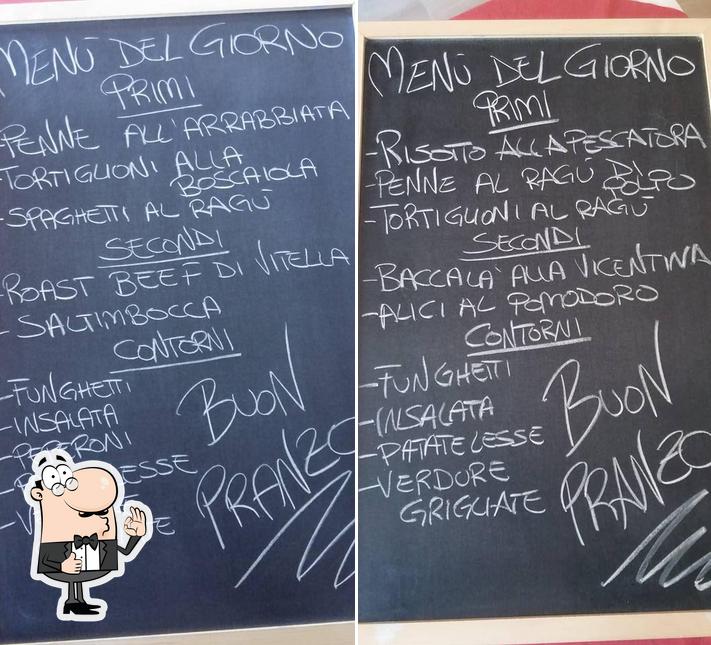 MENÙ DEL GIORNO
PRIMI
-PENNE ALL'ARRABBIATA
-TORTIGLIONI ALLA
BOSCAIOLA
-SPAGHETTI AL RAGÙ
SECONDI
-ROAST BEEF DI VITELLA
- SALTIMBOCCA
CONTORNI
-FUNGHETTI
-INSALATA
BUON
PRANZO
MENÙ DEL GIORNO
PRIMI
-RISOTTO ALLA PESCATORA
-PENNE AL RAGÙ DI
POLPO
-TORTIGLIONI AL RAGÙ
SECONDI
-BACCALA' ALLA VICENTINA
-ALICI AL POMODORO
CONTORNI
-FUNGHETTI
-INSALATA
-PATATE LESSE
-VERDURE
GRIGLIATE
BUON
PRANZO